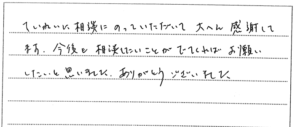 ていねいに相談にのっていただいて大へん感謝して
ます。今後も相談したいことがでてくればお願い
したいと思いました。ありがとうございました。